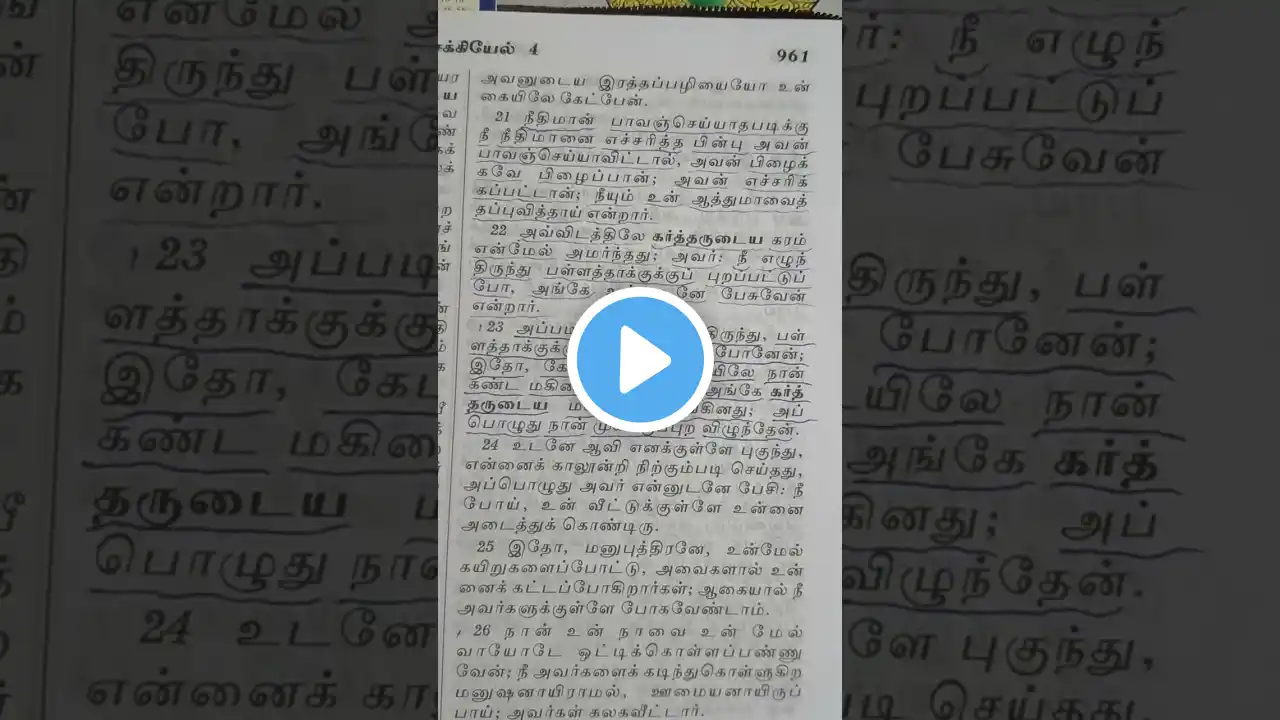 சக்கியேல் 4
961
அவனுடைய இரத்தப்பழியையோ உன்
கையிலே கேட்பேன்.
21 நீதிமான் பாவஞ்செய்யாதபடிக்கு
நீ நீதிமானை எச்சரித்த பின்பு அவன்
பாவஞ்செய்யாவிட்டால், அவன் பிழைக்
கவே பிழைப்பான்; அவன் எச்சரிக்
கப்பட்டான்; நீயும் உன் ஆத்துமாவைத்
தப்புவித்தாய் என்றார்.
22 அவ்விடத்திலே கர்த்தருடைய கரம்
என்மேல் அமர்ந்தது; அவர்: நீ எழுந்
திருந்து பள்ளத்தாக்குக்குப் புறப்பட்டுப்
போ, அங்கே பேசுவேன்
என்றார்.
23 அப்படி திருந்து, பள்
ளத்தாக்குக்கு போனேன்;
இதோ, யிலே நான்
கண்ட அங்கே கர்த்
தருடைய கினது; அப்
பொழுது நான் விழுந்தேன்.
24 உடனே ஆவி எனக்குள்ளே புகுந்து,
என்னைக் காலூன்றி நிற்கும்படி செய்தது,
அப்பொழுது அவர் என்னுடனே பேசி: நீ
போய், உன் வீட்டுக்குள்ளே உன்னை
அடைத்துக் கொண்டிரு.
25 இதோ, மனுபுத்திரனே, உன்மேல்
கயிறுகளைப்போட்டு, அவைகளால் உன்
னைக் கட்டப்போகிறார்கள்; ஆகையால் நீ
அவர்களுக்குள்ளே போகவேண்டாம்.
26 நான் உன் நாவை உன் மேல்
வாயோடே ஒட்டிக்கொள்ளப்பண்ணு
வேன்; நீ அவர்களைக் கடிந்துகொள்ளுகிற
மனுஷனாயிராமல், ஊமையனாயிருப்
பாய்; அவர்கள் கலகவீட்டார்.